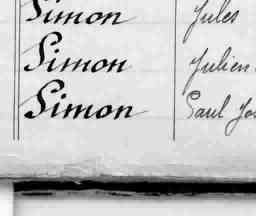 Simon Jules
Simon Julien
Simon Paul